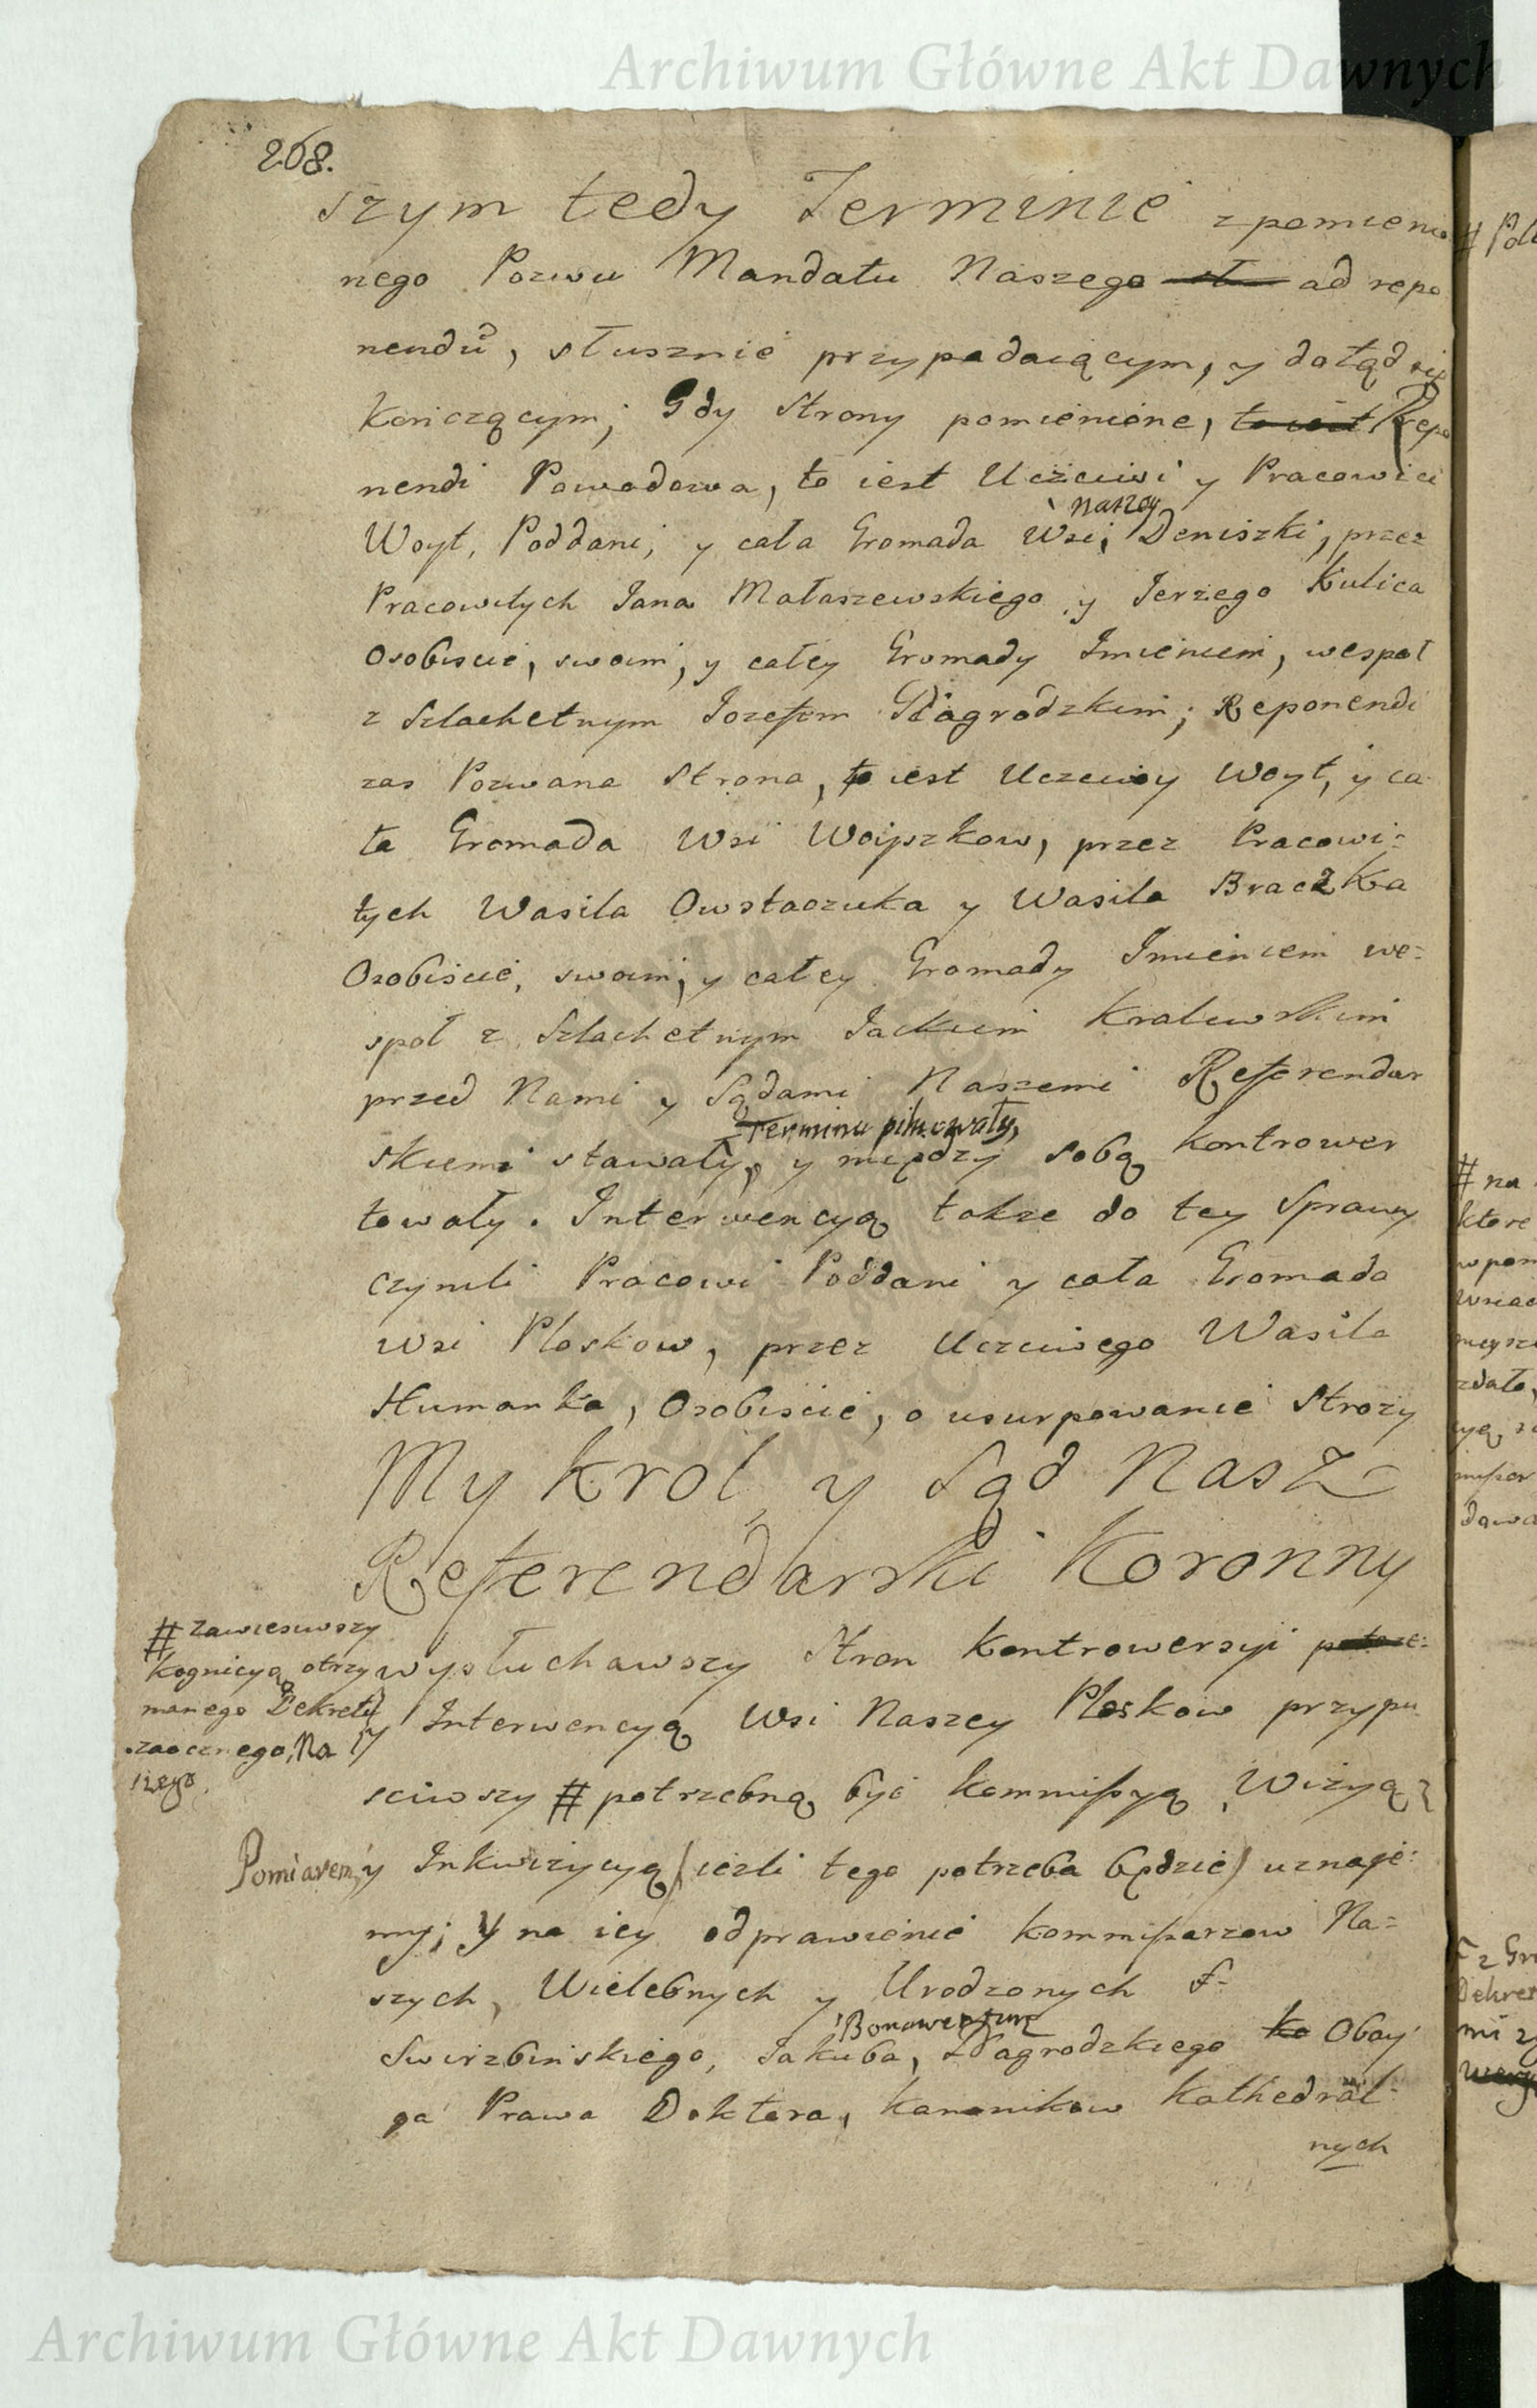 Archiwum Główne Akt Dawnych
268.
szym tedy Terminie z pomienio
nego Pozwu Mandatu Naszego ad repo
nendū, słusznie przypadaiącym, y dotąd się
kończącym; Gdy Strony pomienione, to iest Repo
nendi Powodowa, to iest Uczciwi y Pracowici
naszey
Woyt, Poddani, y cała Gromada Wsi, Deniszki, przez
Pracowitych Jana Mataszewskiego y Jerzego Kulica
Osobiscie, swoim, y całey Gromady Imieniem, wespoł
z Szlachetnym Jozefem Zdagrodzkim; Reponendi
zas Pozwana Strona, to iest Uczciwy Woyt, y ca
ła Gromada Wsi Woyszkow, przez Pracowi=
tych Wasila Owstaczuka y Wasila Braczka
Osobiście, swoim, y całey Gromady Imieniem we=
społ z Szlachetnym Jackiem Kralewskim
przed Nami y Sądami Naszemi Referendar
Terminu pilnowały,
skiemi stawały, y między sobą kontrower
towały. Interwencyą takze do tey Sprawy
czynili Pracowi Poddani y cała Gromada
wsi Ploskow, przez Uczciwego Wasila
Humanka, Osobiscie, o usurpowanie Strozy
My Krol, y Sąd Nasz
Referendarski Koronny
# zawiesiwszy
kognicyą otrzy
manego Dekretu
zaocznego, Na
wysłuchawszy Stron Kontrowersyi
y Interwencyą Wsi Naszey Ploskow przypu
sciwszy # potrzebną być kommissyą, Wizyą
Pomiarem,
y Inkwizycyą (iezli tego potrzeba będzie) uznaie=
my; Y na iey odprawienie kommissarzow Na=
szych, Wielebnych y Urodzonych F=
Bonawenturę
Swirzbinskiego, Jakuba, Zdagrodzkiego ko Oboy
ga Prawa Doktora, kanonikow kathedral=
nych
Archiwum Główne Akt Dawnych